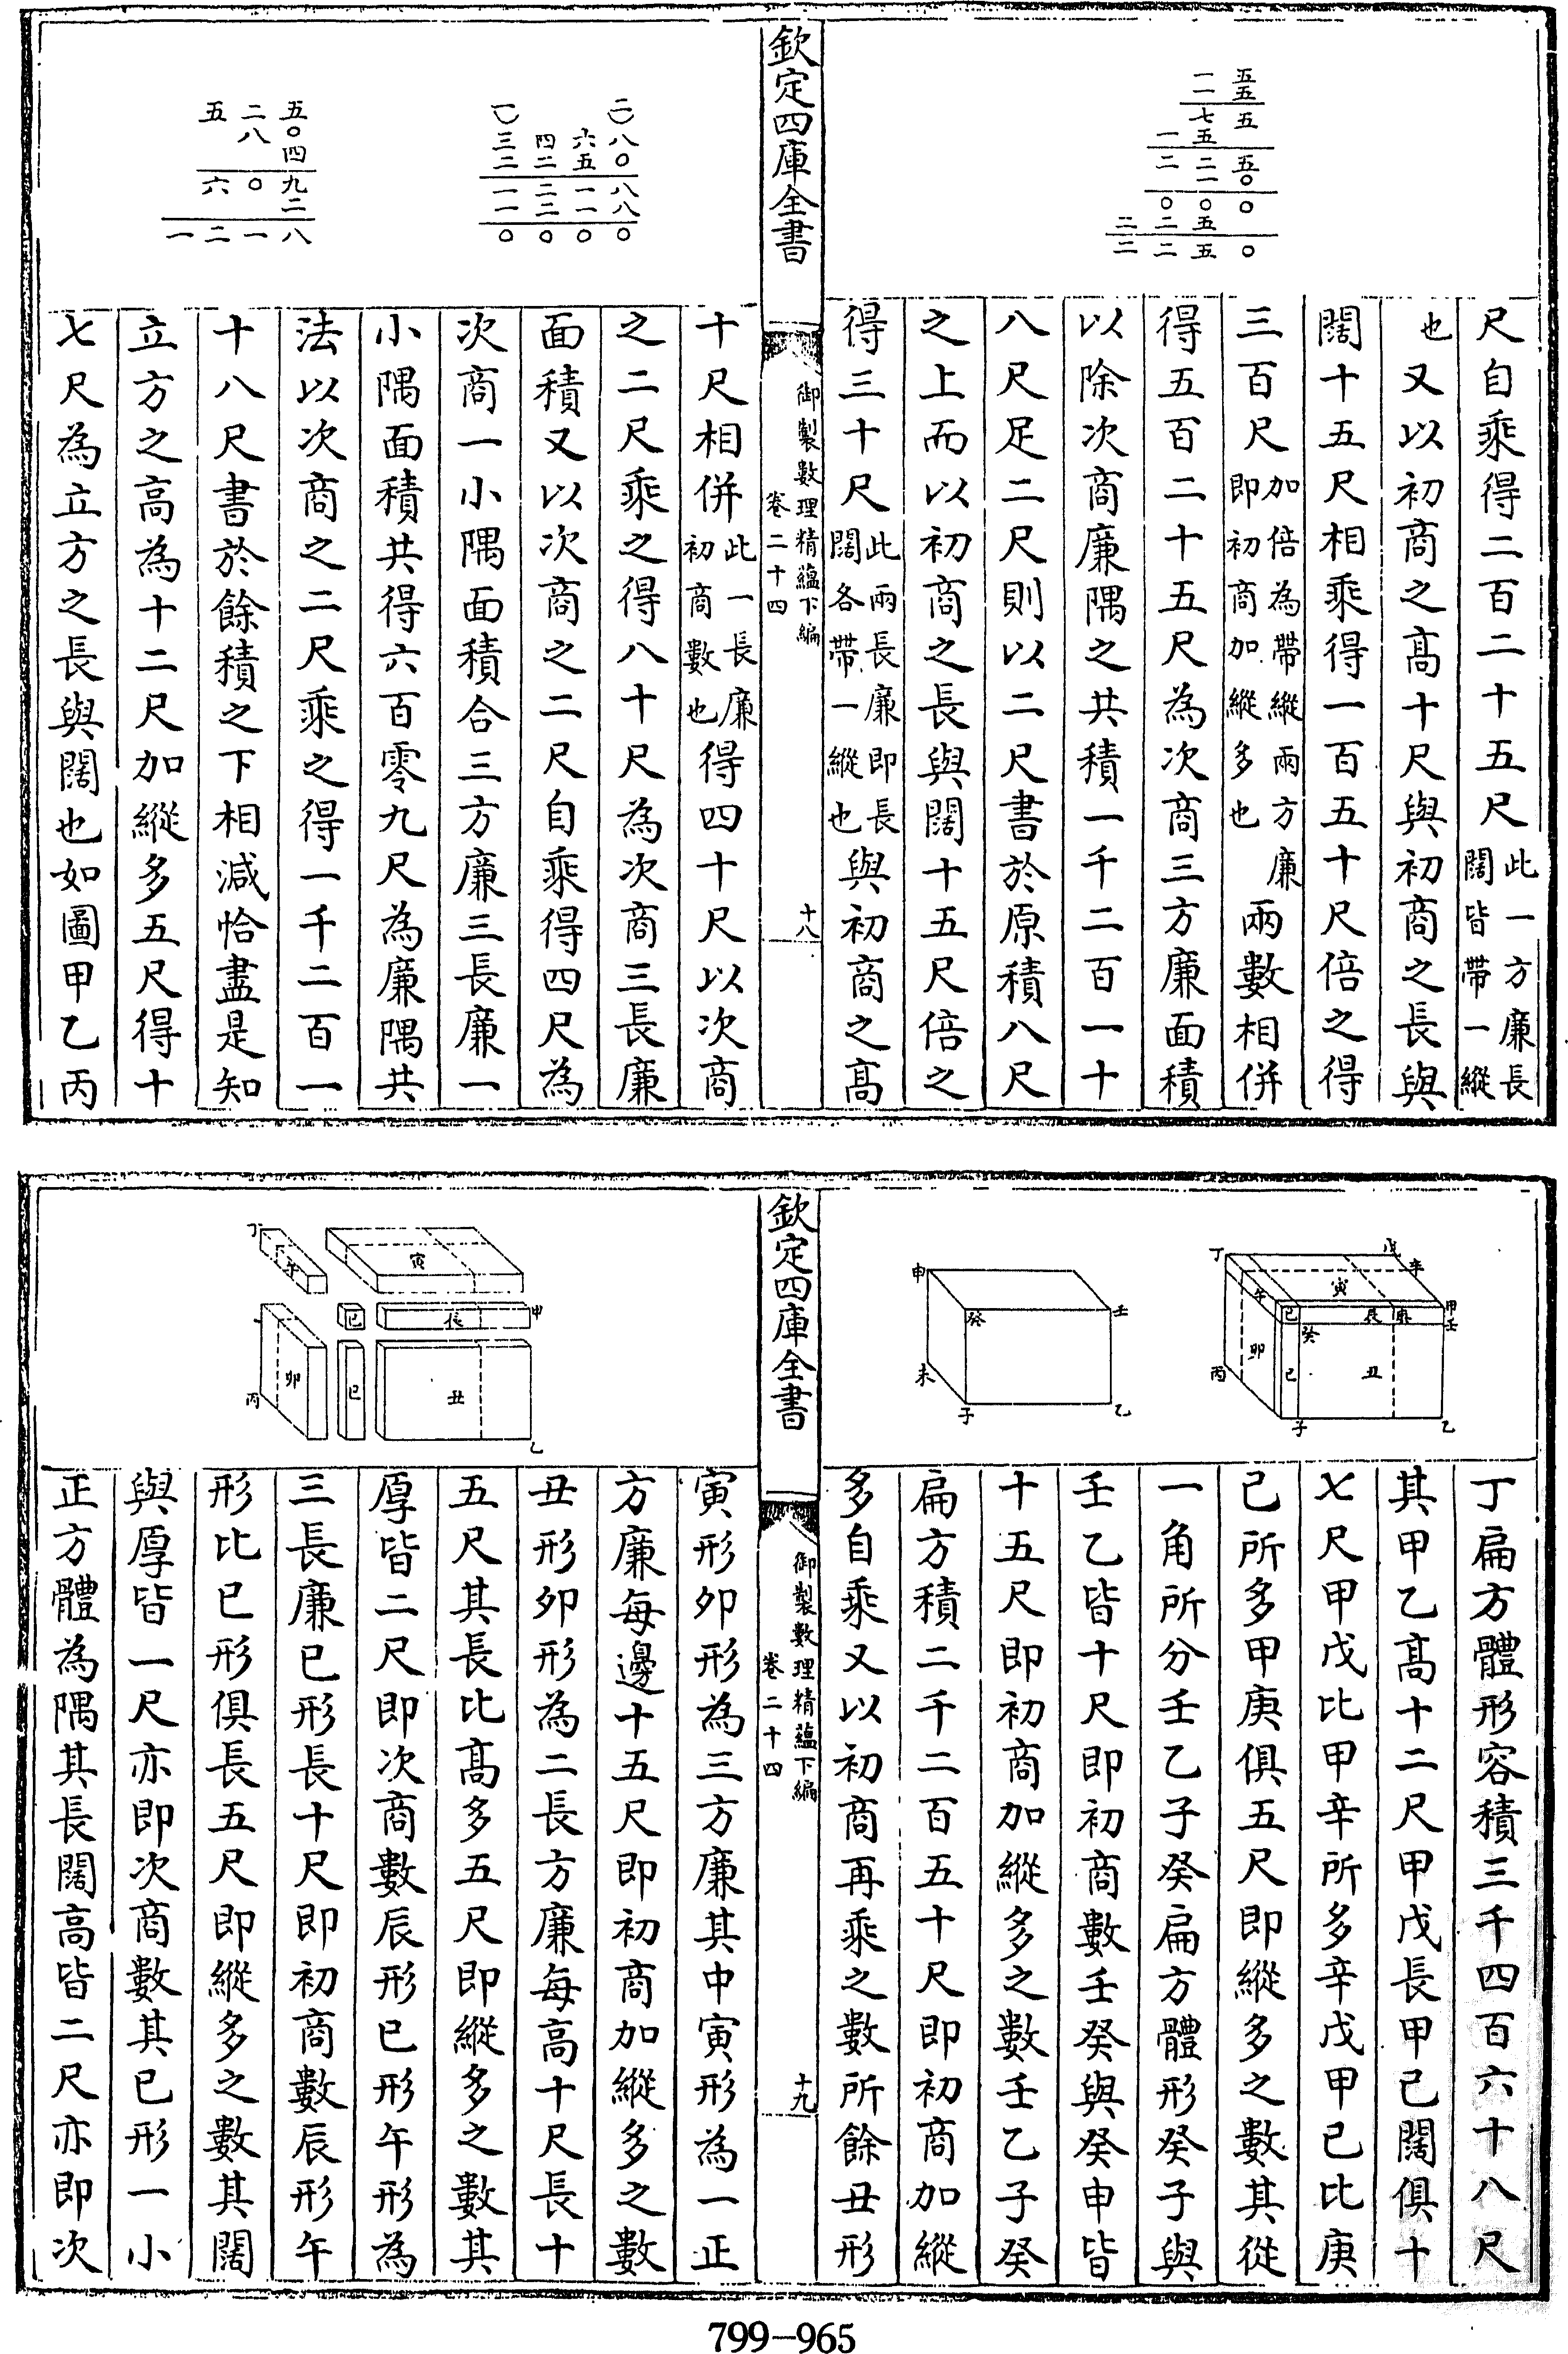 一五
一五
七五
一五
二二五
一〇
〇〇〇
二二五
二二五〇
尺自乘得二百二十五尺此一方廉長闊皆帶一縱
也又以初商之高十尺與初商之長與
闊十五尺相乘得一百五十尺倍之得
三百尺加倍為帶縱兩方廉即初商加縱多也兩數相併
得五百二十五尺為次商三方廉面積
以除次商廉隅之共積一千二百一十
八尺足二尺則以二尺書於原積八尺
之上而以初商之長與闊十五尺倍之
得三十尺此兩長廉即長闊各帶一縱也與初商之高
欽定四庫全書
御製數理精蘊下編
卷二十四
十八
一二
三四六八
二二五〇
一二一八
一二一八
〇〇〇〇
五二五
八〇
四
六〇九
二
一二一八
十尺相併此一長廉初商數也得四十尺以次商
之二尺乘之得八十尺為次商三長廉
面積又以次商之二尺自乘得四尺為
次商一小隅面積合三方廉三長廉一
小隅面積共得六百零九尺為廉隅共
法以次商之二尺乘之得一千二百一
十八尺書於餘積之下相減恰盡是知
立方之高為十二尺加縱多五尺得十
七尺為立方之長與闊也如圖甲乙丙
丁戊辛甲壬庚辰寅午巳癸卯己丑丙子乙
申壬癸未子乙
丁扁方體形容積三千四百六十八尺
其甲乙高十二尺甲戊長甲己闊俱十
七尺甲戊比甲辛所多辛戊甲己比庚
己所多甲庚俱五尺即縱多之數其從
一角所分壬乙子癸扁方體形癸子與
壬乙皆十尺即初商數壬癸與癸申皆
十五尺即初商加縱多之數壬乙子癸
扁方積二千二百五十尺即初商加縱
多自乘又以初商再乘之數所餘丑形
欽定四庫全書
御製數理精蘊下編
卷二十四
十九
丁午寅巳辰甲卯巳丑丙乙
寅形卯形為三方廉其中寅形為一正
方廉每邊十五尺即初商加縱多之數
丑形卯形為二長方廉每高十尺長十
五尺其長比高多五尺即縱多之數其
厚皆二尺即次商數辰形巳形午形為
三長廉巳形長十尺即初商數辰形午
形比巳形俱長五尺即縱多之數其闊
與厚皆一尺亦即次商數其巳形一小
正方體為隅其長闊高皆二尺亦即次
799-965